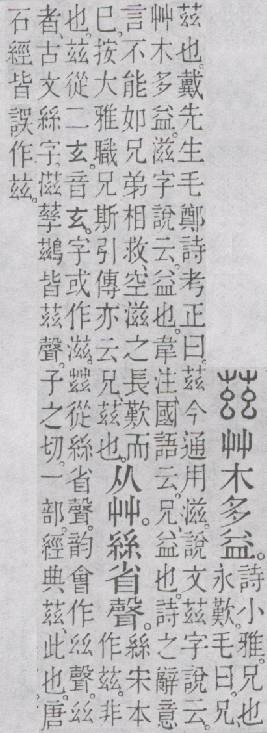 茲艸木多益。詩小雅。兄也
永歎。毛曰。兄
茲也。戴先生毛鄭詩考正曰。茲今通用滋。說文茲字說云。
艸木多益。滋字說云。益也。韋注國語云。兄、益也。詩之辭意
言不能如兄弟相救、空滋之長歎而
已。按大雅職兄斯引傳亦云兄茲也。
从艸。絲省聲。絲宋本
作茲。非
也。玆從二玄。音玄。字或作滋。茲從絲省聲。韵會作𢆶聲。𢆶
者、古文絲字。滋孳鶿皆茲聲。子之切。一部。經典茲、此也。唐
石經皆誤作玆。